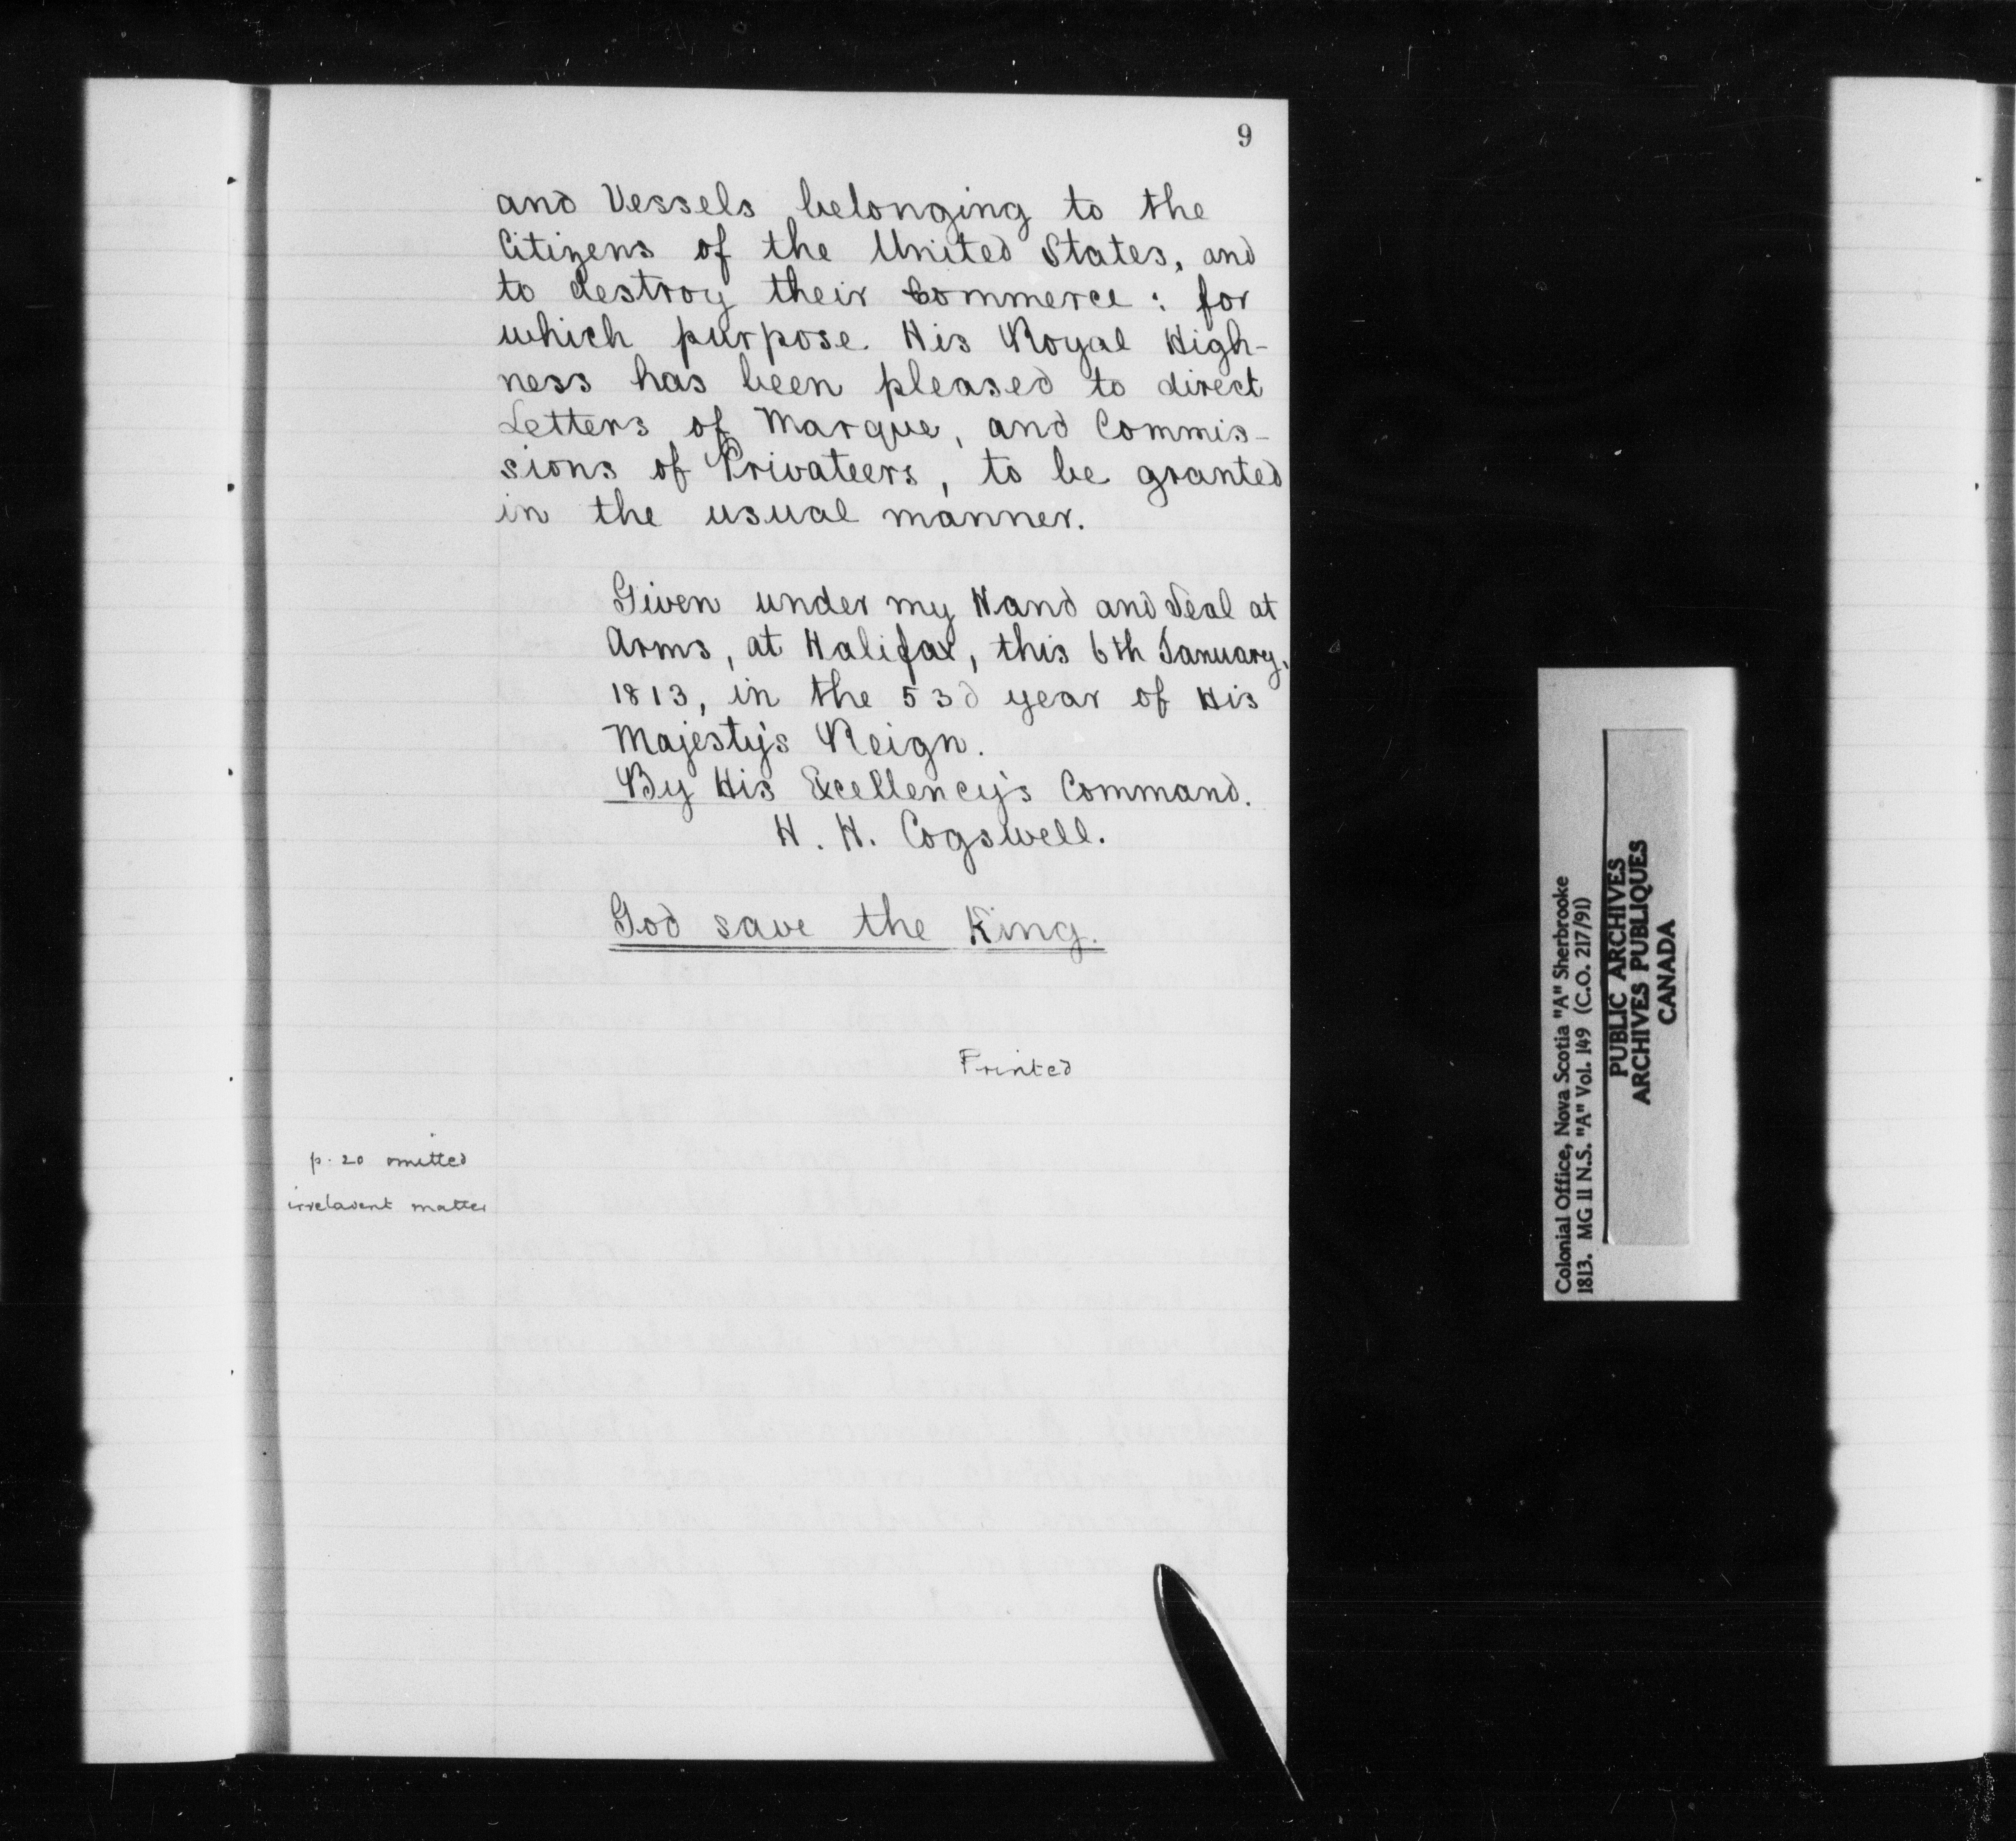 9
and Vessels belonging to the
Citizens of the United States, and
to destroy their Commerce: for
which purpose His Royal High-
ness has been pleased to direct
Letters of Marque, and Commis-
sions of Privateers, to be granted
in the usual manner.
Given under my Hand and Seal at
Arms, at Halifax, this 6th January,
1813, in the 53d year of His
Majesty's Reign.
By His Excellency's Command.
H. H. Cogswell.
God save the King.
Printed
p. 20 omitted
irrelavent matter
Colonial Office, Nova Scotia "A" Sherbrooke
1813. MG 11 N.S. "A" Vol. 149 (C.O. 217/91)
PUBLIC ARCHIVES
ARCHIVES PUBLIQUES
CANADA